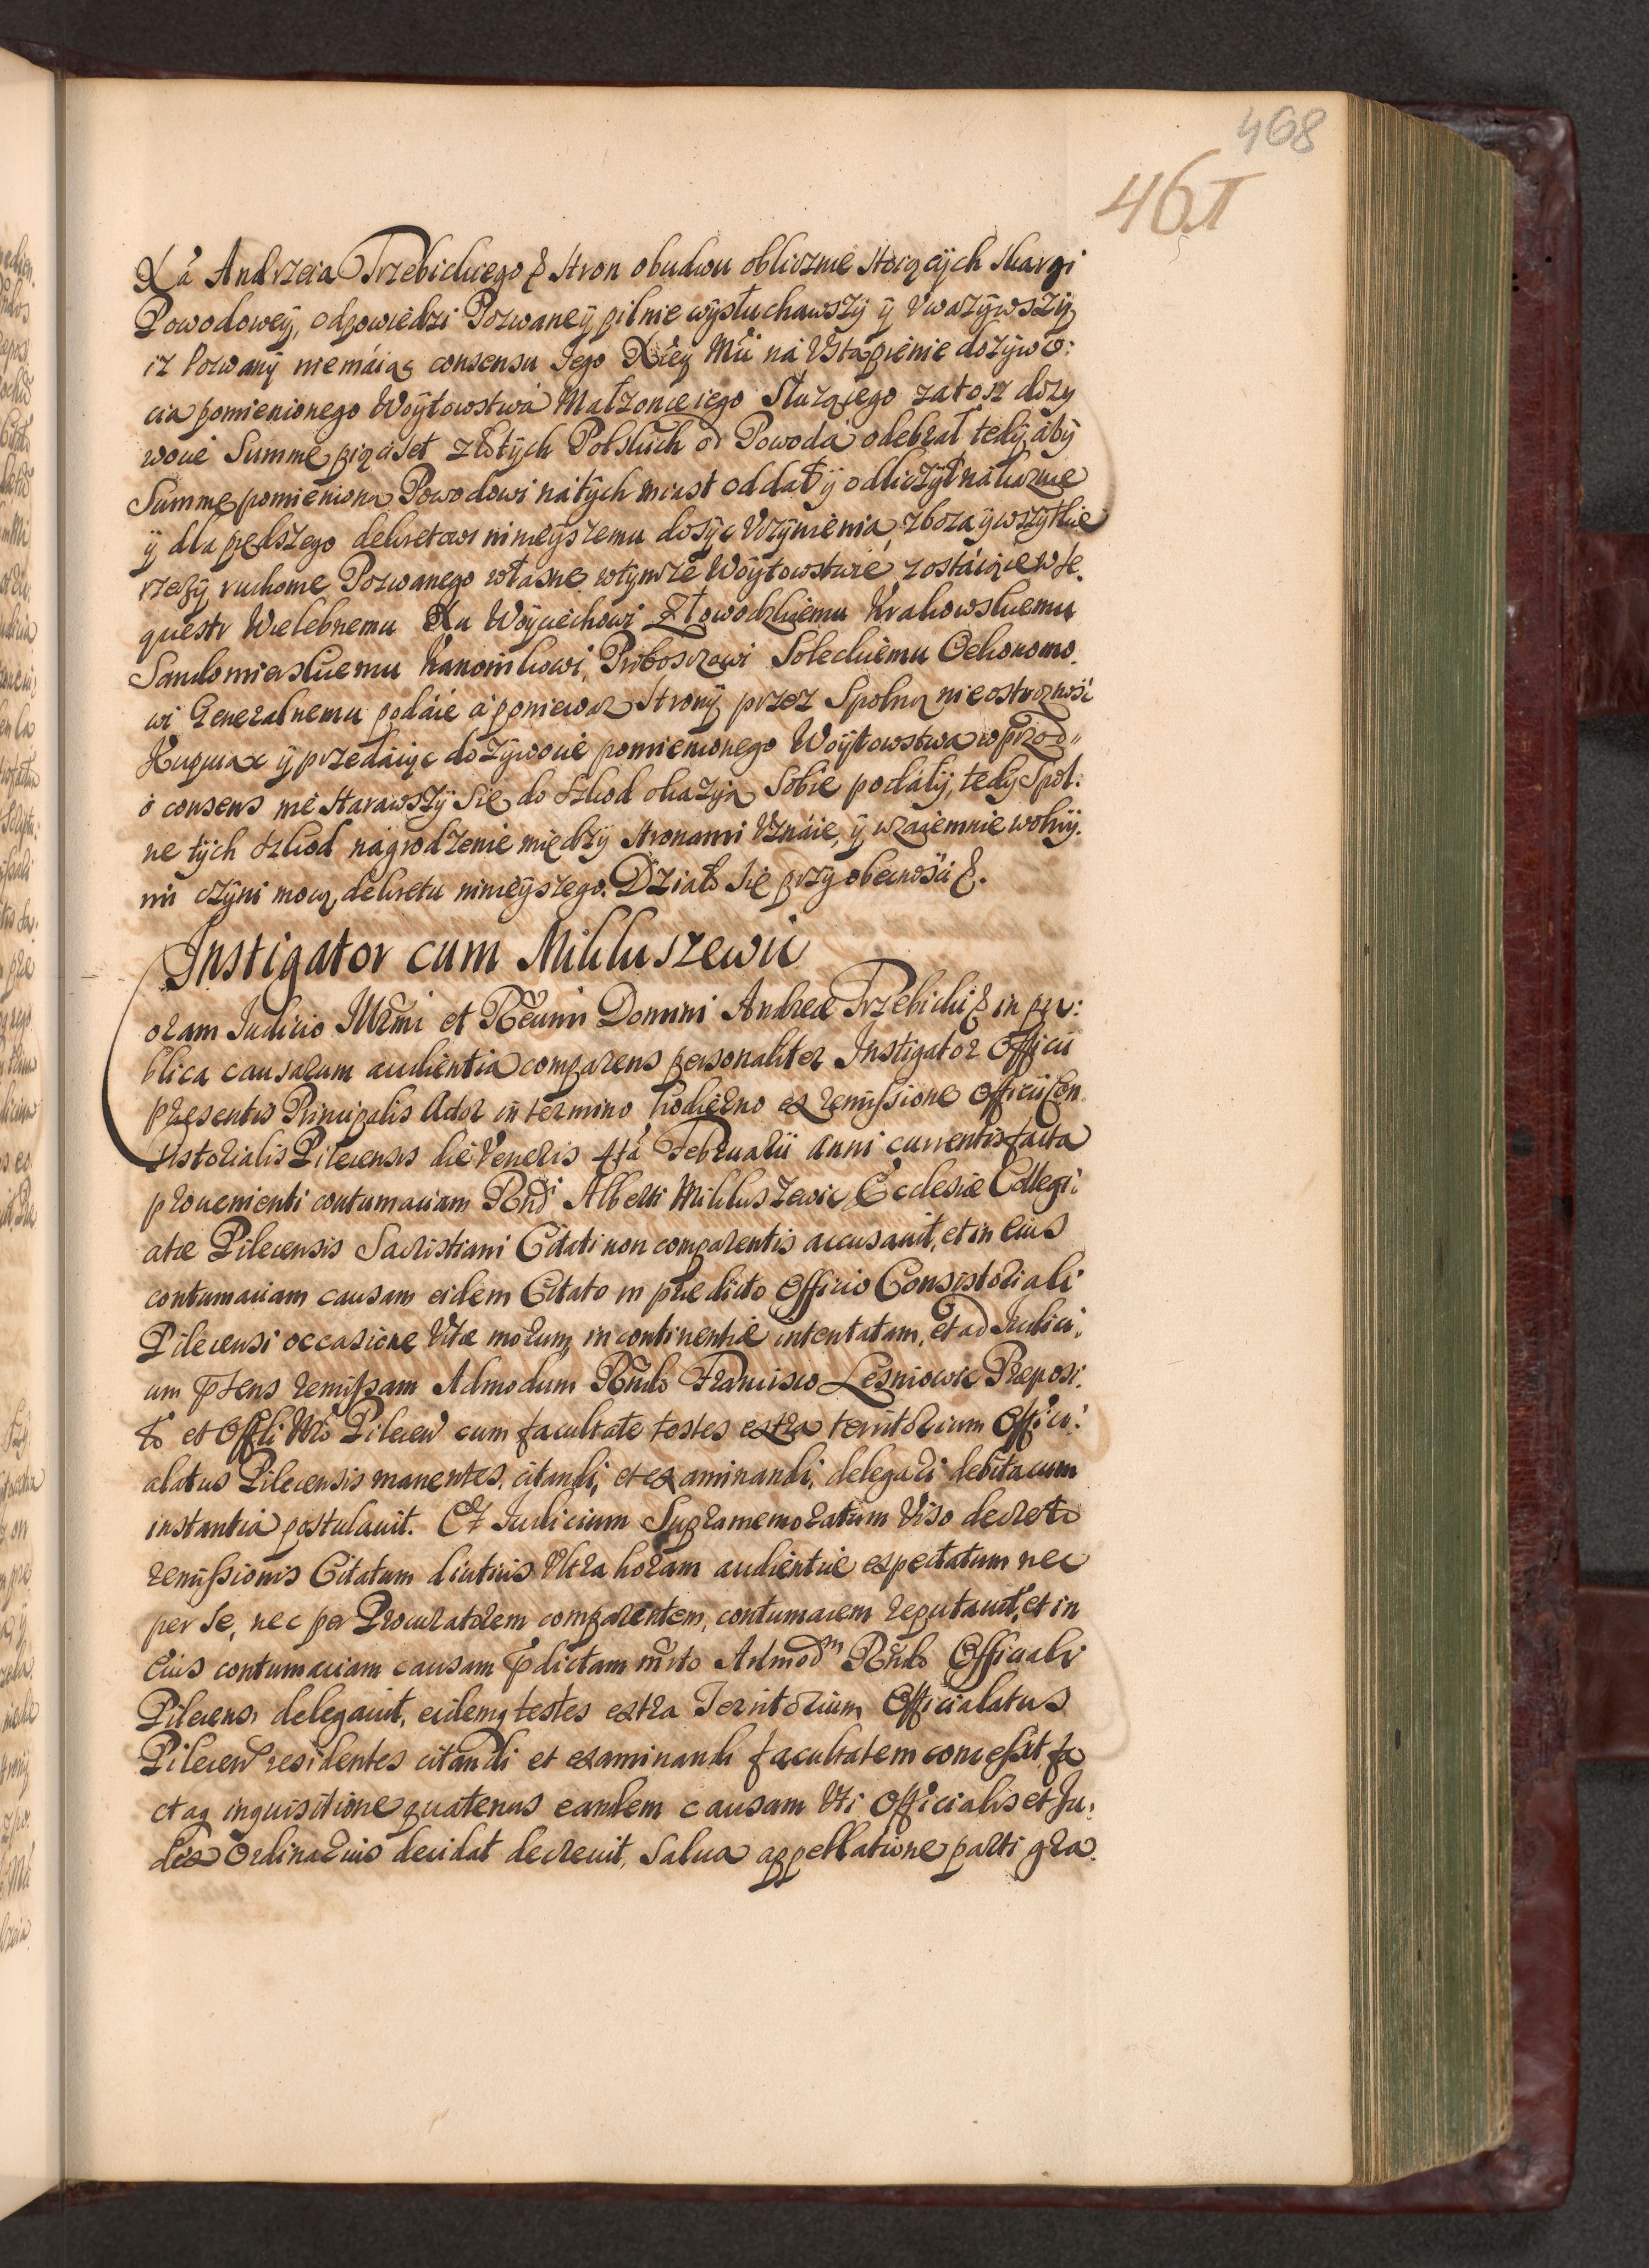 468
461
Xá Andrzeia Trzebickiego & stron obudwu oblicznie stoiących skargi
Powodoweÿ, odpowiedzi Pozwaneÿ pilnie wÿsłuchawszÿ ÿ Vważÿwszÿ,
iż Pozwanÿ niemáiąc consensu Iego Xcey Mci ná Vstąpienie dożÿwo:
cia pomienionego Woÿtowstwá Małżonce iego służącego zatosz dozy
wocie Summę pięćset złotÿch Polskich od Powodá odebrał tedÿ, ábÿ
Summę pomienioną Powodowi nátÿch miast oddał ÿ odliczÿł náliczne
ÿ dla prędszego dekretowi ninieÿszemu dosÿc Vczÿnienia, zboża ÿ wszÿtkie
rzeczÿ ruchome Pozwanego własne, wtÿmże Woÿtowstwie zostáiące w se.
questr Wielebnemu Xu Woÿciechowi Złowodzkiemu Krakowskiemu
Sandomierskiemu Kanonikowi, Proboszczowi Soleckiemu Oekonomo.
wi Generalnemu podáie á ponieważ Stronÿ przez spolną nieostrożność
Kupuiąc ÿ przedáiąc dożÿwocie pomienionego Woÿtowstwa wprzod„
o consens nie starawszÿ się do szkod okazÿą sobie podálÿ, tedÿ spol:
ne tÿch szkod nágrodzenie międzÿ stronami Vznáie, ÿ wzaiemnie wolnÿ.
mi czÿni mocą dekretu ninieÿszego. Działo się przÿ obecności &.
Instigator cum Mikluszewic
oram Iudicio Illrmi et Rẽumi Domini Andreæ Trzebicki & in pu:
blica causarum audientia comparens personaliter Instigator Officii
præsentis Principalis Actor in termino hodierno ex remissione Officii Con
sistorialis Pilecensis die Veneris 4tá Februarii anni currentis facta
prouenienti contumaciam Rndi Alberti Mikluszewic Ecclesiæ Collegi:
atæ Pilecensis Sacristiani Citati non comparentis accusauit, et in eius
contumaciam causam eidem Citato in prædicto Officio Consistoriali
Pilecensi occasione Vitæ morum, incontinentiæ intentatam, et ad Iudici„
um ptens remissam Admodum Rndo Francisco Lesniowic Præposi.
to et Offli Nro Pilecen cum facultate testes extra territorium Offici:
alatus Pilecensis manentes, citandi, et examinandi, delegari debita cum
instantia postulauit. Et Iudicium Supramemoratum Viso decreto
remissionis Citatum diutius Vltra horam audientiæ expectatum nec
per se, nec per Procuratorem comparentem, contumacem reputauit, et in
eius contumaciam causam pdictam mrto Admodm Rndo Officiali
Pilecensi delegauit, eidemq testes extra Territorium Officialatus
Pilecen residentes citandi et examinandi facultatem concessit, fa
ctaq inquisitione quatenus eandem causam Vti Officialis et Iu.
dex Ordinarius decidat decreuit, salua appellatione parti gra.